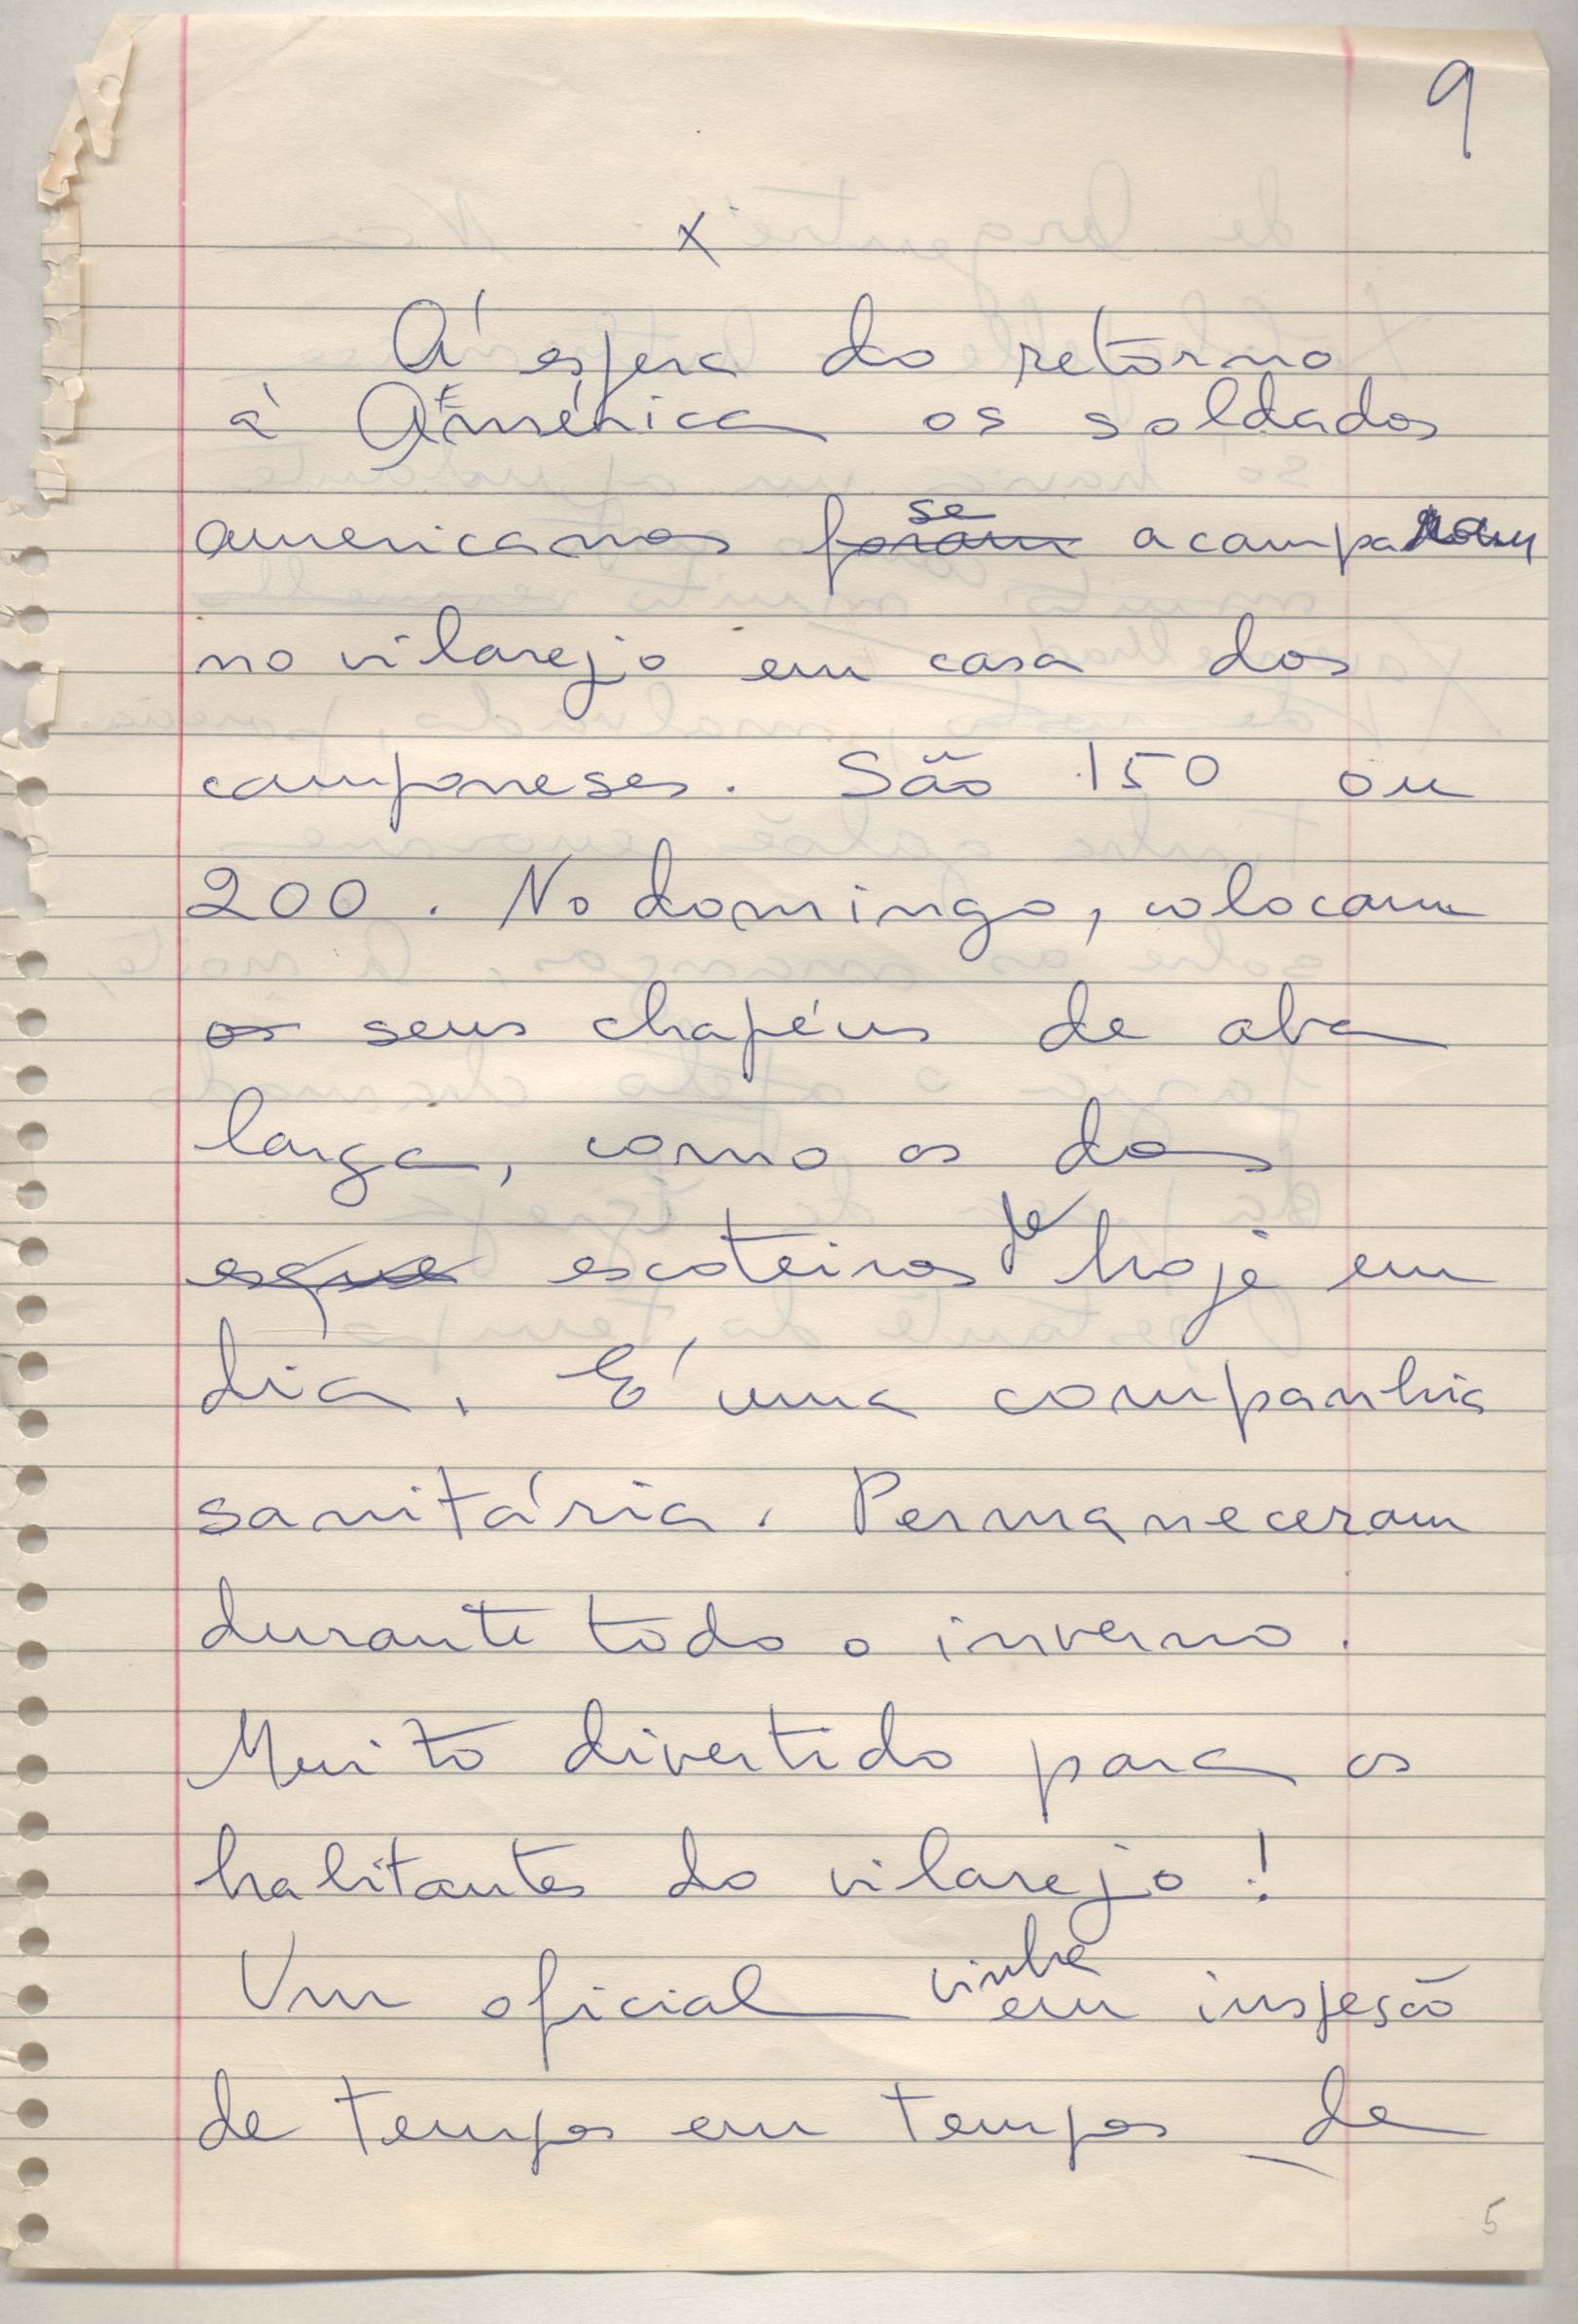 9
x
À espera do retorno
à América os soldados
americanos foram se acamparam
no vilarejo em casa dos
camponeses. São 150 ou
200. No domingo, colocam
os seus chapéus de aba
larga, como os dos
esque escoteiros de hoje em
dia. É uma companhia
sanitária. Permaneceram
durante todo o inverno.
Muito divertido para os
habitantes do vilarejo!
Um oficial vinha em inspeção
de tempos em tempos de
5